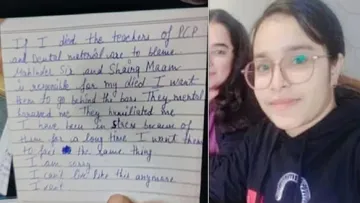 If I died the teachers of PCP
and Dental material are to blame
Mahinder Sir and Shairg Maam
is responible for my died I want
them to go behind the bars They mental
harassed me They humiliated me
I have been in stress because of
them for a long time I want them
to feel the same thing
I am sorry
I can't live like this anymore
I can't